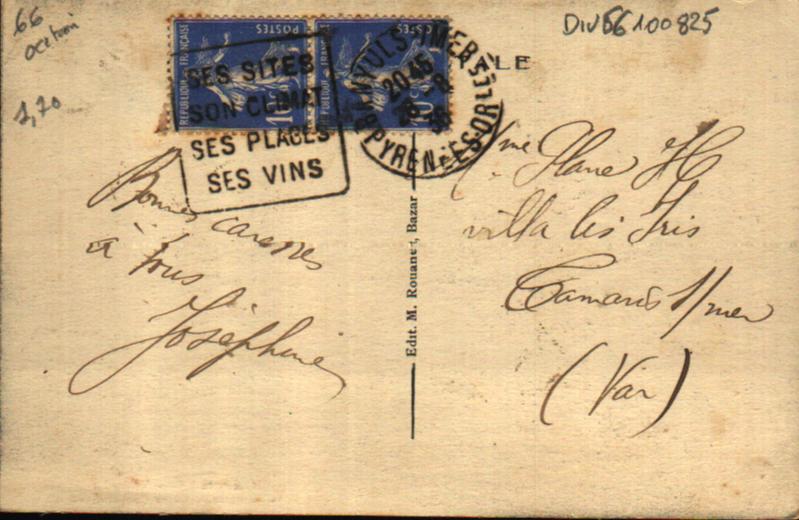 66
1,70
DIV66 100825
REPUBLIQUE FRANÇAISE
POSTES
10c
POSTES
10c
SES SITES
SON CLIMAT
SES PLAGES
SES VINS
BANYULS S MER
20 45
28 - 8
36
PYRENEES ORLES
LE
Bonnes caresses
à tous
Joséphine
Edit. M. Rouanet, Bazar
Mme Plane H
villa les Iris
Tamaris s/mer
(Var)